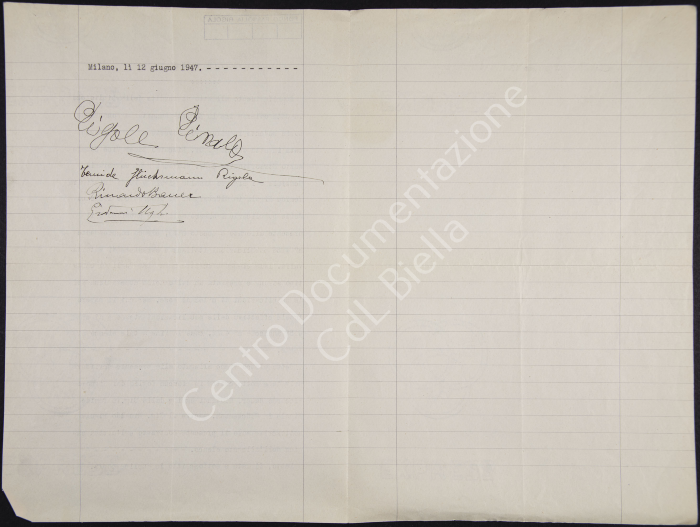 Milano, li 12 giugno 1947. - - - - - - - - - - -
Rigola Rinaldo
Glücksmann Rigola
Riccardo Bauer
Centro Documentazione
CdL Biella